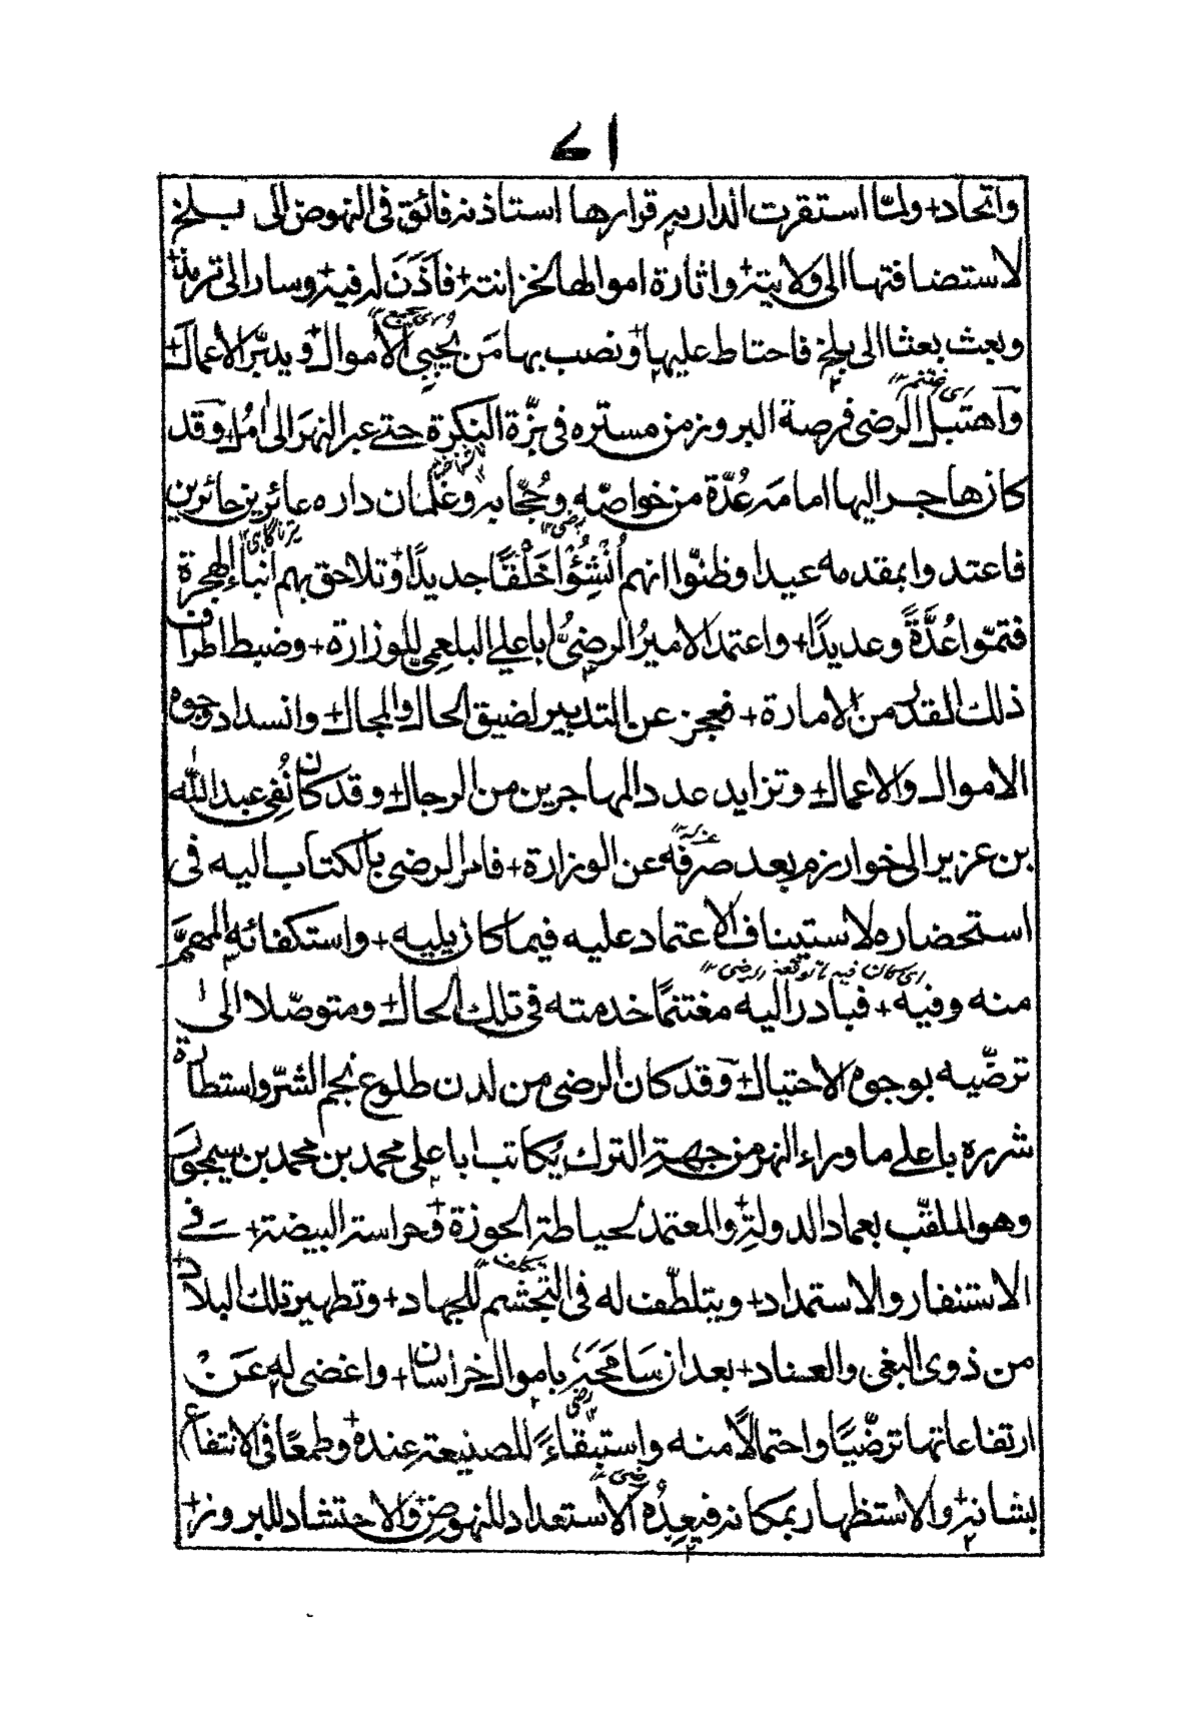 ٧١
واتحاد+ ولمّا استقرت الدار به قرارها استاذنه فائق فى النهوض الى بلخ
لاستضافتها الى ولايته+ واثارة اموالها لخزانته+ فَاَذَنَ له فيه+ وسار الى ترمذ+
وبعث بعثا الى بلخ فاحتاط عليها+ ونصب بها مَن يُجبِى الاموال+ ويدبّر الاعمال+
وَاهتَبَل الرضى فرصة البروز من مستتره فى بزّة النكرة حتے عبر النهرَ الى اٰمُل+ وَقد
كان هاجر اليها امامَه عُدّة من خواصّه وحُجّابه وغلمان داره عائرين حائرين
فاعتدوا بمقدمه عيدا وظنّوا انهم اُنْشِؤُا خَلْقًا جديدًا+ وتلاحق بهم انباء الهجرة
فتمّوا عُدَّةً وعديدًا+ واعتمد الاميرُ الرضىُّ اباعلے البلعمىّ للوزارة+ وضبط اطراف
ذلك القدر من الامارة+ فعجز عن التدبير لضيق الحال والمجال+ وانسداد وجوه
الاموال والاعمال+ وتزايد عدد المهاجرين من الرجال+ وقد كان نُفِى عبد اللّٰه
بن عزير الى خوارزم بعد صرفه عن الوزارة+ فامر الرضى بالكتاب اليه فى
استحضاره لاستيناف الاعتماد عليه فيما كان يليه+ واستكفائه المهمَّ
منه وفيه+ فبادر اليه مغتنمًا خدمته فى تلك الحال+ ومتوصّلا الىٰ
ترضّيه بوجوه الاحتيال+ وَقد كان الرضى من لدن طلوع نجم الشرّ واستطارة
شرره باعلے ماوراء النهر من جهةِ الترك يُكاتب اباعلى محمد بن محمد بن سيمجور
وهو الملقّب بعماد الدولةِ+ والمعتمد لحياطة الحوزة+ وحراسة البيضة+ فے
الاستنفار والاستمداد+ ويتلطّف له فى التجشم للجهاد+ وتطهير تلك البلاد+
من ذوى البغى والعناد+ بعد ان سَامحَه باموال خراسان+ واغضى له عَنْ
ارتفاعاتها ترضّيًا واحتمالًا منه واستبقاءً للصنيعة عنده+ وطمعًا فى الانتفاع
بشانه+ والاستظهار بمكانه فيعِدُه الاستعداد للنهوض+ والاحتشاد للبروز+